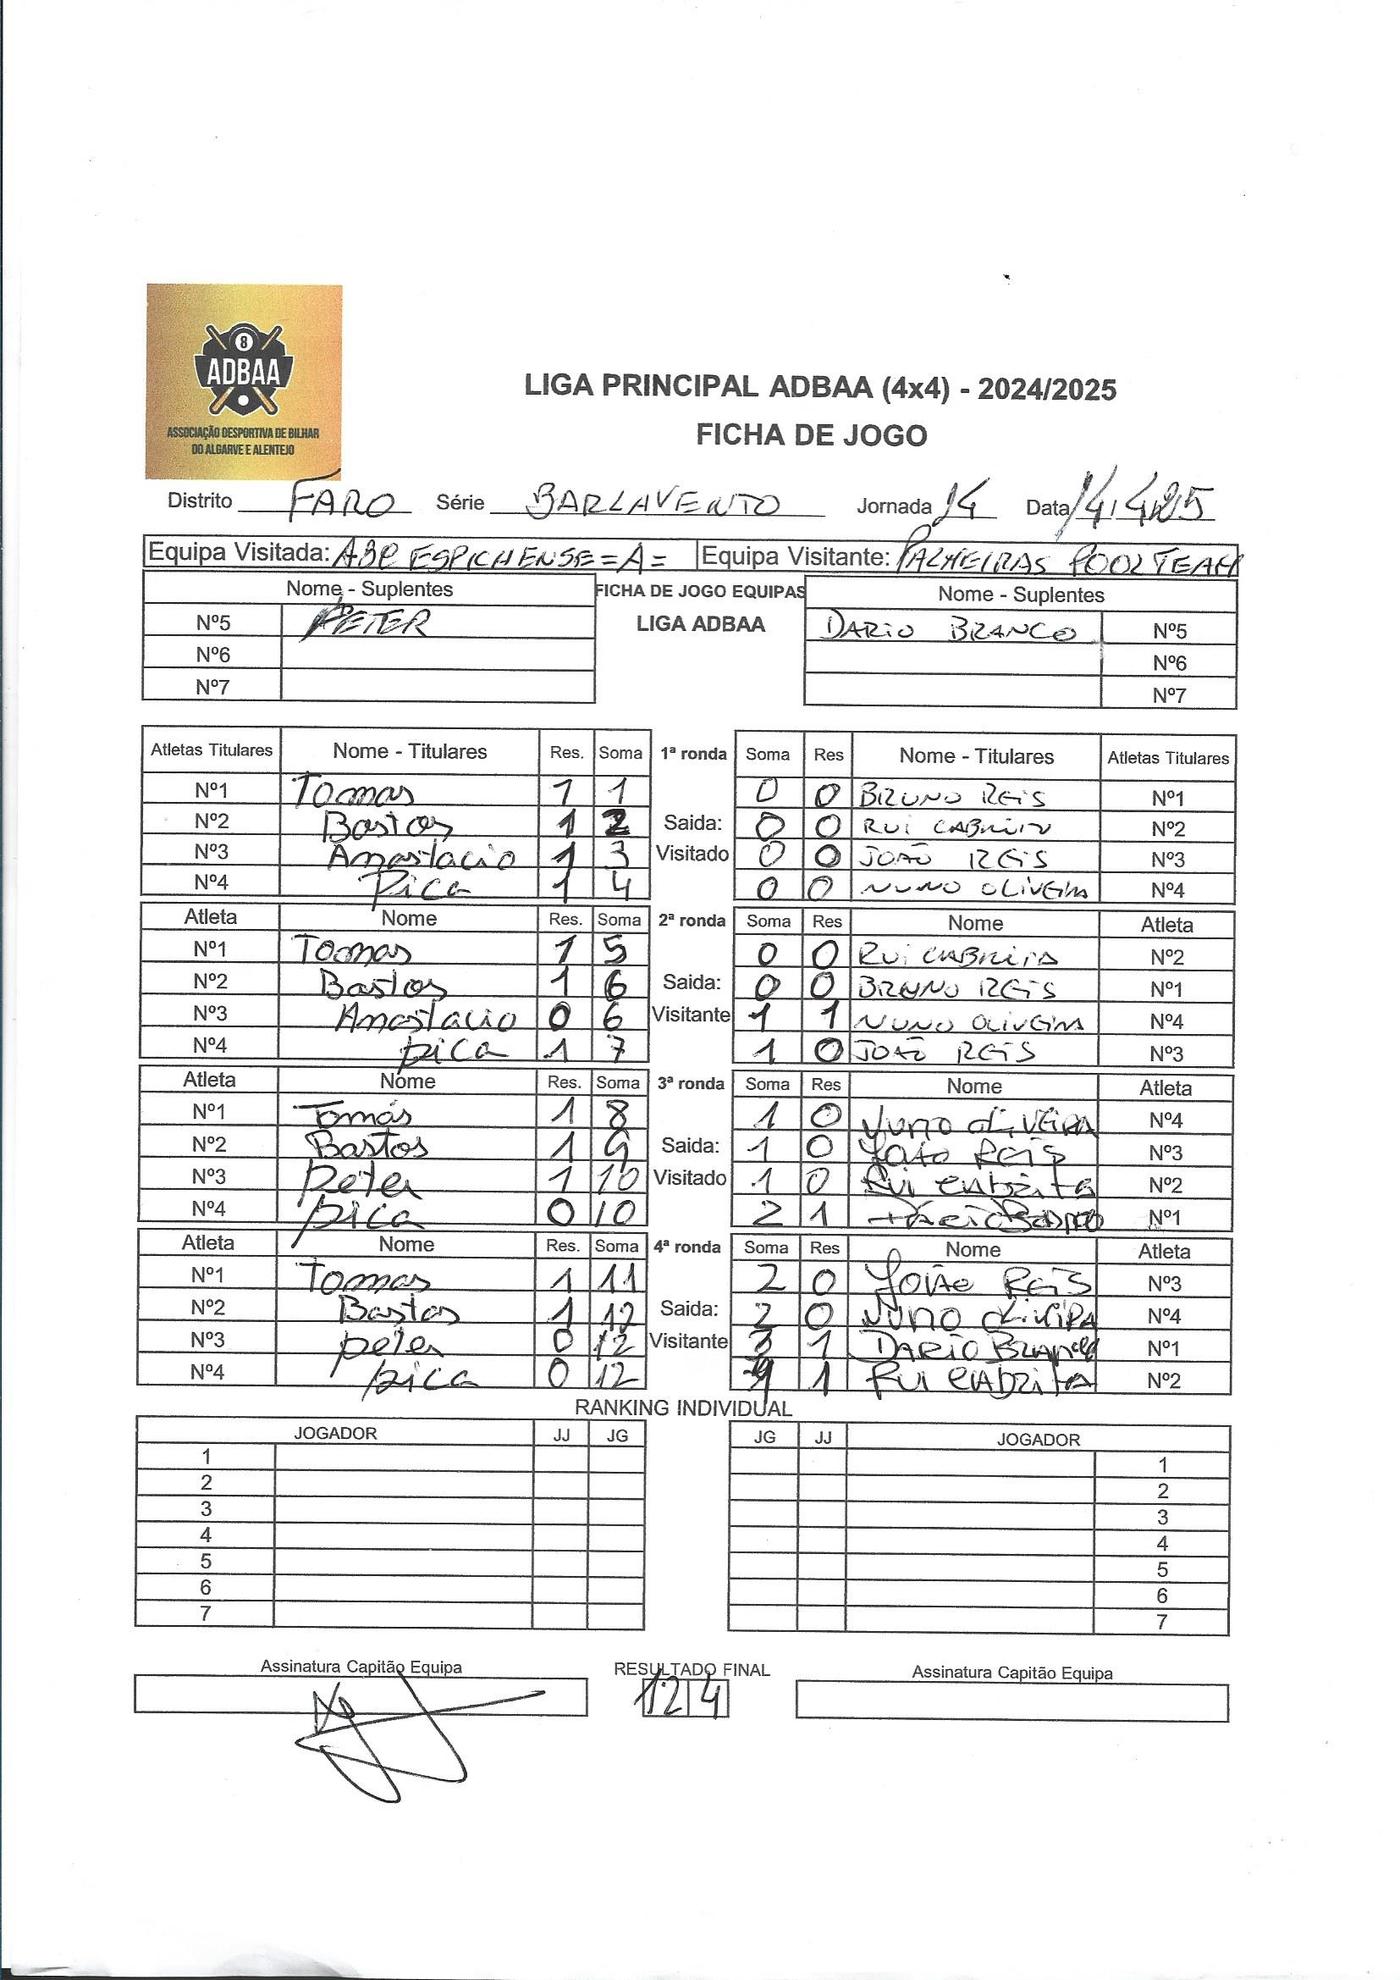 8
ADBAA
ASSOCIAÇÃO DESPORTIVA DE BILHAR
DO ALGARVE E ALENTEJO
LIGA PRINCIPAL ADBAA (4x4) - 2024/2025
FICHA DE JOGO
Distrito FARO Série BARLAVENTO Jornada 14 Data 14/4/25
Equipa Visitada: ABP ESPICHENSE =A= Equipa Visitante: PALHEIRAS POOL TEAM
Nome - Suplentes FICHA DE JOGO EQUIPAS Nome - Suplentes
Nº5 PETER LIGA ADBAA DARIO BRANCO Nº5
Nº6 Nº6
Nº7 Nº7
Atletas Titulares Nome - Titulares Res. Soma 1ª ronda Soma Res Nome - Titulares Atletas Titulares
Nº1 Tomas 1 1 0 0 BRUNO REIS Nº1
Nº2 Bastos 1 2 Saida: 0 0 RUI CABRITA Nº2
Nº3 Anastacio 1 3 Visitado 0 0 JOÃO REIS Nº3
Nº4 Pica 1 4 0 0 NUNO OLIVEIRA Nº4
Atleta Nome Res. Soma 2ª ronda Soma Res Nome Atleta
Nº1 Tomas 1 5 0 0 RUI CABRITA Nº2
Nº2 Bastos 1 6 Saida: 0 0 BRUNO REIS Nº1
Nº3 Anastacio 0 6 Visitante 1 1 NUNO OLIVEIRA Nº4
Nº4 pica 1 7 1 0 JOÃO REIS Nº3
Atleta Nome Res. Soma 3ª ronda Soma Res Nome Atleta
Nº1 Tomás 1 8 1 0 NUNO OLIVEIRA Nº4
Nº2 Bastos 1 9 Saida: 1 0 João REIS Nº3
Nº3 Peter 1 10 Visitado 1 0 RUI CABRITA Nº2
Nº4 pica 0 10 2 1 Nº1
Atleta Nome Res. Soma 4ª ronda Soma Res Nome Atleta
Nº1 Tomas 1 11 2 0 João REIS Nº3
Nº2 Bastos 1 12 Saida: 2 0 NUNO OLIVEIRA Nº4
Nº3 peter 0 12 Visitante 3 1 DARIO BRANCO Nº1
Nº4 pica 0 12 4 1 RUI CABRITA Nº2
RANKING INDIVIDUAL
JOGADOR JJ JG JG JJ JOGADOR
1 1
2 2
3 3
4 4
5 5
6 6
7 7
Assinatura Capitão Equipa RESULTADO FINAL Assinatura Capitão Equipa
12 4